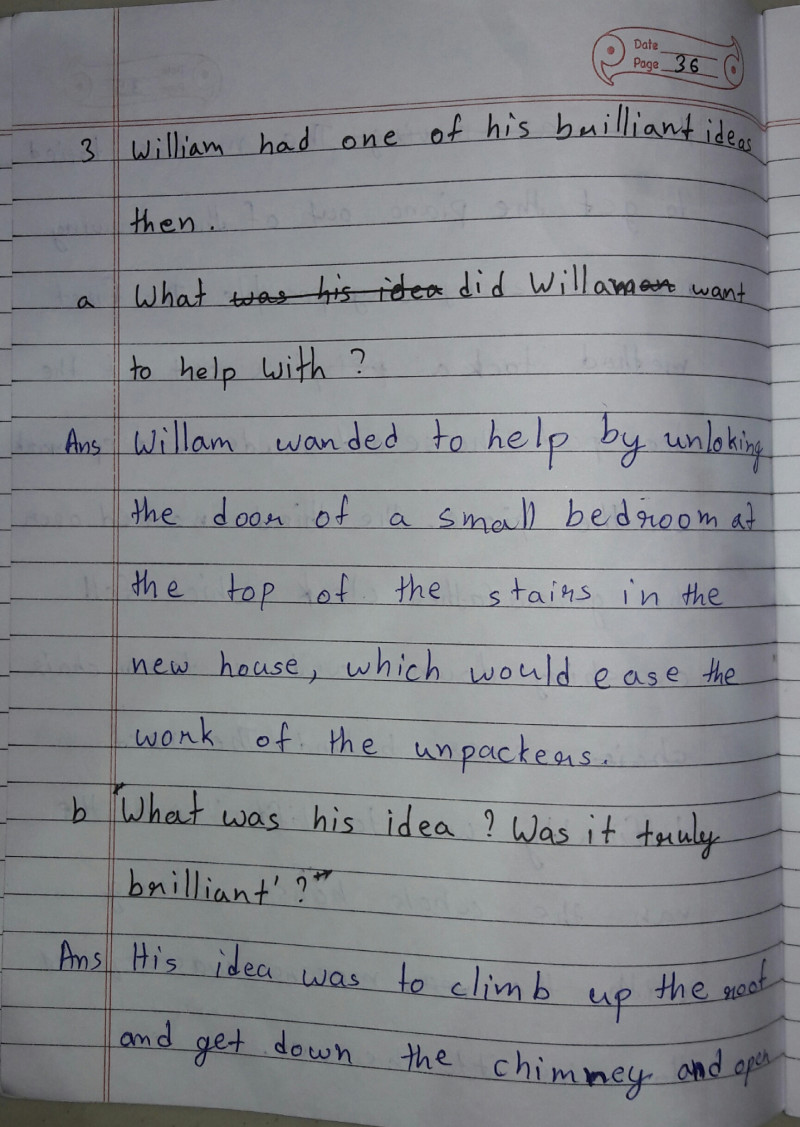 Date
Page 36
3 William had one of his builliant ideas
then.
a What was his idea did Willam want
to help with ?
Ans Willam wanded to help by unloking
the door of a small bedroom at
the top of the stairs in the
new house, which would ease the
work of the unpackers.
b "What was his idea ? Was it truly
brilliant' ?"
Ans His idea was to climb up the roof
and get down the chimney and open